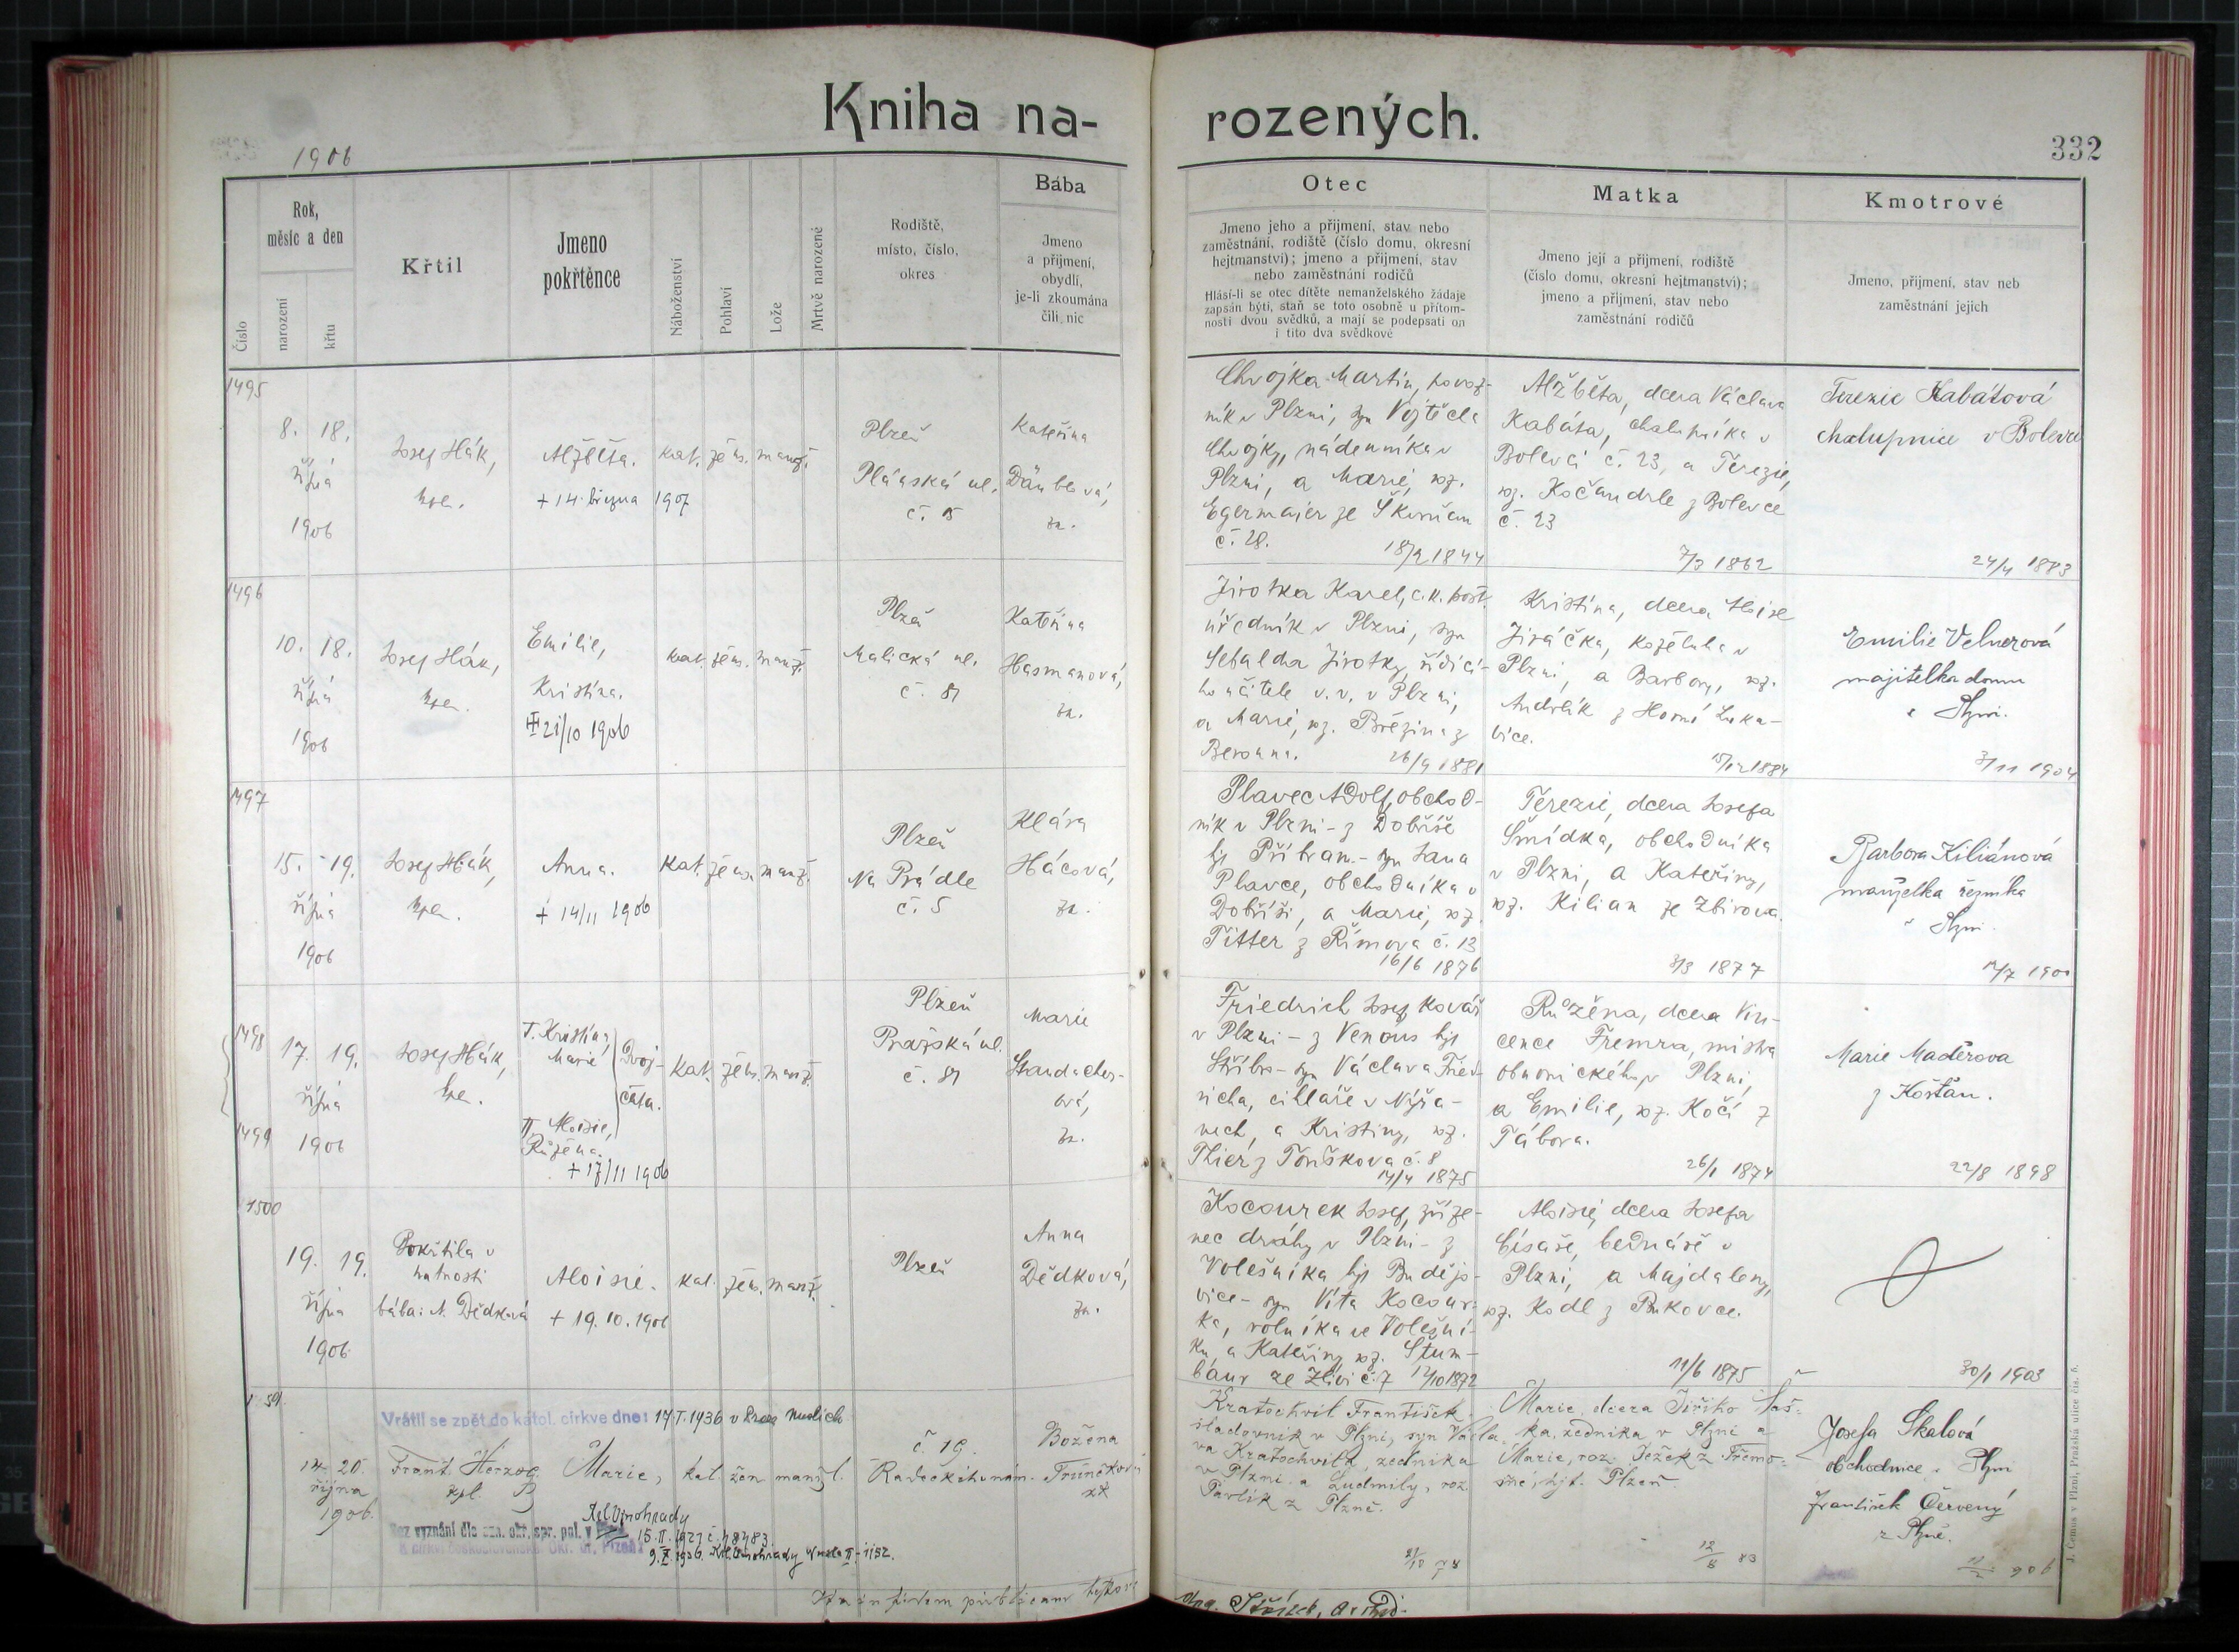 Kniha na-
rozených.
332
1906
Číslo
Rok,
měsíc a den
narození
křtu
Křtil
Jmeno
pokřtěnce
Náboženství
Pohlaví
Lože
Mrtvě narozené
Rodiště,
místo, číslo,
okres
Bába
Jmeno
a příjmení,
obydlí,
je-li zkoumána
čili nic
Otec
Jmeno jeho a příjmení, stav nebo
zaměstnání, rodiště (číslo domu, okresní
hejtmanství); jmeno a příjmení, stav
nebo zaměstnání rodičů
Hlásí-li se otec dítěte nemanželského žádaje
zapsán býti, staň se toto osobně u přítom-
nosti dvou svědků, a mají se podepsati on
i tito dva svědkové
Matka
Jmeno její a příjmení, rodiště
(číslo domu, okresní hejtmanství);
jmeno a příjmení, stav nebo
zaměstnání rodičů
Kmotrové
Jmeno, příjmení, stav neb
zaměstnání jejich
1495
8. 18.
října
1906
Josef Hák,
kpl.
Alžběta.
+ 14. března 1907
kat. žens. manž.
Plzeň
Plaská ul.
č. 15
Kateřina
Däublová,
zk.
Chvojka Martin, povoz-
ník v Plzni, syn Vojtěcha
Chvojky, nádenníka v
Plzni, a Marie, roz.
Egermajer ze Skvrňan
č. 28.
18/2 1844
Alžběta, dcera Václava
Kabáta, chalupníka v
Bolevci č. 23, a Terezie,
roz. Kočandrle z Bolevce
č. 23
7/3 1862
Terezie Kabátová
chalupnice v Bolevci
24/4 1883
1496
10. 18.
října
1906
Josef Hák,
kpl.
Emilie,
Kristina.
21/10 1906
kat. žens. manž.
Plzeň
Malická ul.
č. 81
Kateřina
Hasmanová,
zk.
Jirotka Karel, c. k. pošt.
úředník v Plzni, syn
Sebalda Jirotky, řídící-
ho učitele v. v. v Plzni,
a Marie, roz. Březina z
Berouna.
26/9 1881
Kristina, dcera Aloise
Jiráčka, koželuha v
Plzni, a Barbory, roz.
Andrlík z Horní Luka-
vice.
15/12 1884
Emilie Velnerová
majitelka domu
v Plzni.
3/11 1904
1497
15. 19.
října
1906
Josef Hák,
kpl.
Anna.
+ 14/11 1906
kat. žens. manž.
Plzeň
Na Prádle
č. 5
Klára
Hácová,
zk.
Plavec Adolf, obchod-
ník v Plzni - z Dobříše
hjt Příbram - syn Jana
Plavce, obchodníka v
Dobříši, a Marie, roz.
Titter z Římova č. 13
16/6 1876
Terezie, dcera Josefa
Šmídka, obchodníka
v Plzni, a Kateřiny,
roz. Kilian ze Zbirova.
3/3 1877
Barbora Kiliánová
manželka řezníka
v Plzni.
17/7 1900
1498
1499
17. 19.
října
1906
Josef Hák,
kpl.
I. Kristina,
Marie
Dvoj-
čata.
II. Aloisie,
Růžena.
+ 17/11 1906
kat. žens. manž.
Plzeň
Pražská ul.
č. 81
Marie
Standacher-
ová,
zk.
Friedrich Josef, kovář
v Plzni - z Venous hjt
Stříbro - syn Václava Fried-
richa, cihláře v Nýřa-
nech, a Kristiny, roz.
Thier z Touškova č. 8
14/4 1875
Růžena, dcera Vin-
cence Fremra, mistra
obuvnického v Plzni,
a Emilie, roz. Kočí z
Tábora.
26/1 1874
Marie Maděrova
z Košťan.
22/8 1898
1500
19. 19.
října
1906
Pokřtila v
nutnosti
bába: A. Dědková
Aloisie.
+ 19. 10. 1906
kat. žens. manž.
Plzeň
Anna
Dědková,
zk.
Kocourek Josef, zříze-
nec dráhy v Plzni - z
Volešníka hjt Budějo-
vice - syn Víta Kocour-
ka, rolníka ve Volešní-
ku, a Kateřiny, roz. Štum-
baur ze Zlivi č. 7 12/10 1872
Aloisie, dcera Josefa
Císaře, bednáře v
Plzni, a Majdaleny,
roz. Kodl z Bukovce.
11/6 1875
30/1 1903
Vrátil se zpět do katol. církve dne: 17. I. 1936 v Praze Nuslích
14. 20.
října
1906.
Frant. Herzog
kpl.
Marie, kat. žen. manžl.
č. 19.
Božena
Trůnečková
zk
Král. Vinohrady
Bez vyznání dle ozn. okr. spr. pol. v
15. II. 1921 č. 48483
K církvi československé. Okr. úř. Plzeň:
Kratochvil František
sladovník v Plzni, syn Václa-
va Kratochvila, zedníka
v Plzni a Ludmily, roz.
Pavlík z Plzně.
21/10 78
Marie, dcera Jiřího Šaš-
ka, zedníka v Plzni a
Marie, roz. Ježek z Třemo-
šné, hjt. Plzeň.
12/8 83
Josefa Skalová
obchodnice v Plzni
František Červený
z Plzně.
906
J. Čmus v Plzni, Pražská ulice čís. 5.